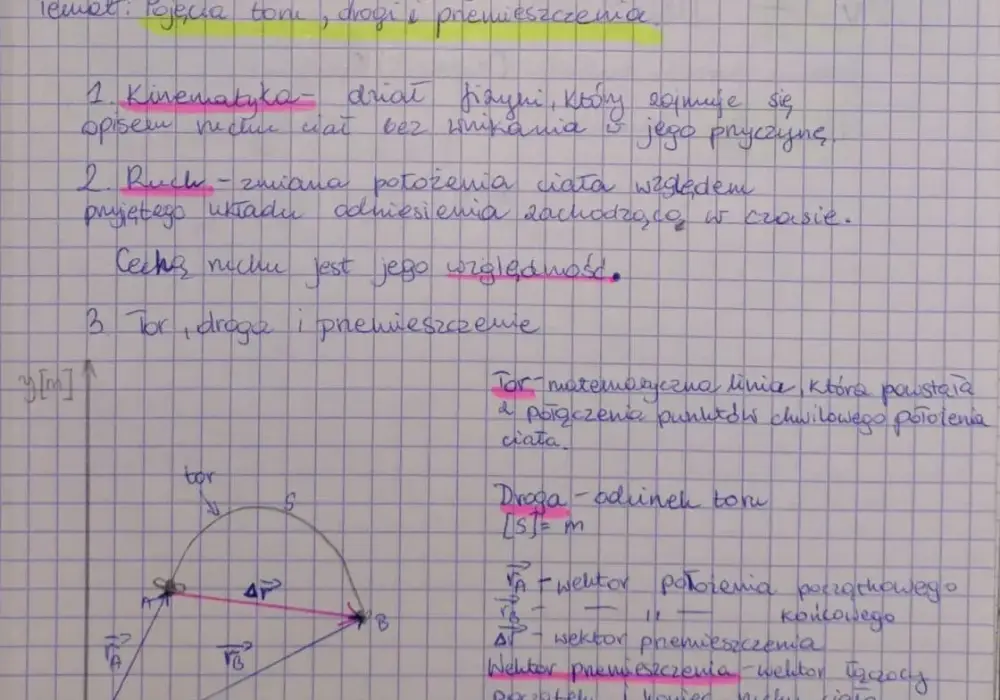 Temat: Pojęcia toru, drogi i przemieszczenia.
1. Kinematyka - dział fizyki, który zajmuje się
opisem ruchu ciał bez wnikania w jego przyczynę.
2. Ruch - zmiana położenia ciała względem
przyjętego układu odniesienia zachodzącą w czasie.
Cechą ruchu jest jego względność.
3 Tor, droga i przemieszczenie
y[m]
tor
S
A
Δr
B
rA
rB
Tor - matematyczna linia, która powstała
z połączenia punktów chwilowego położenia
ciała.
Droga - odcinek toru
[S] = m
rA - wektor położenia początkowego
rB - — " — końcowego
Δr - wektor przemieszczenia
Wektor przemieszczenia - wektor łączący
początek i koniec ruchu ciała